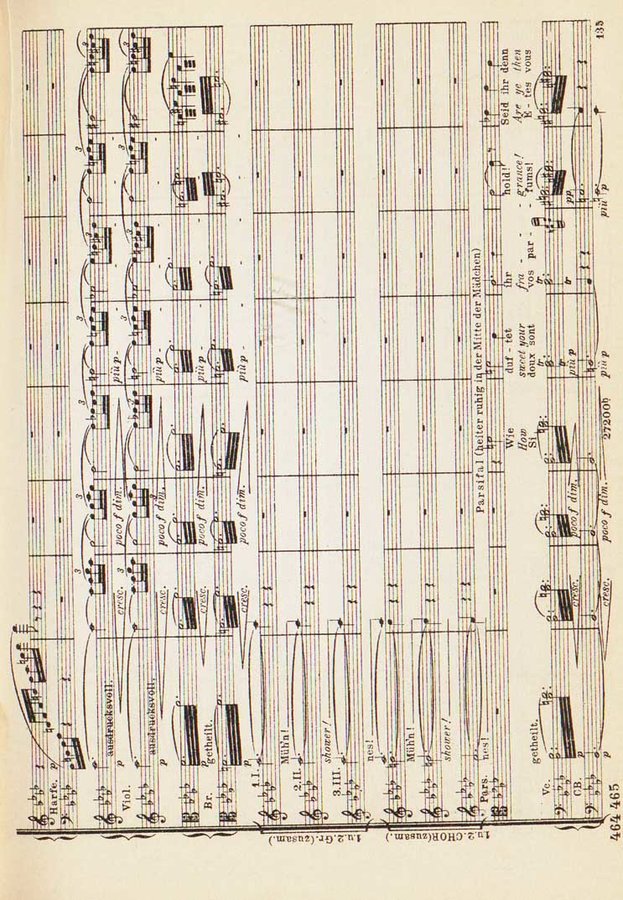 Harfe.
3 3 3 3 3 3 3
ausdrucksvoll.
cresc.
poco f dim.
più p
Viol.
3 3 3 3 3 3 3
ausdrucksvoll.
cresc.
poco f dim.
più p
Br.
getheilt.
p
cresc.
poco f dim.
più p
p
cresc.
poco f dim.
più p
1.u.2.Gr.(zusam.)
1.I.
Müh'n!
2.II.
shower!
3.III.
nes!
1.u.2.CHOR(zusam.)
Müh'n!
shower!
nes!
Parsifal (heiter ruhig in der Mitte der Mädchen)
Pars.
Wie duf - tet ihr hold! Seid ihr denn
How sweet your fra - grance! Are ye then
Si doux sont vos par - fums! E - tes vous
getheilt.
Vc.
p
cresc.
poco f dim.
tr
tr
più p
pp
CB.
p
cresc.
poco f dim.
più p
più p
464 465
27200b
135